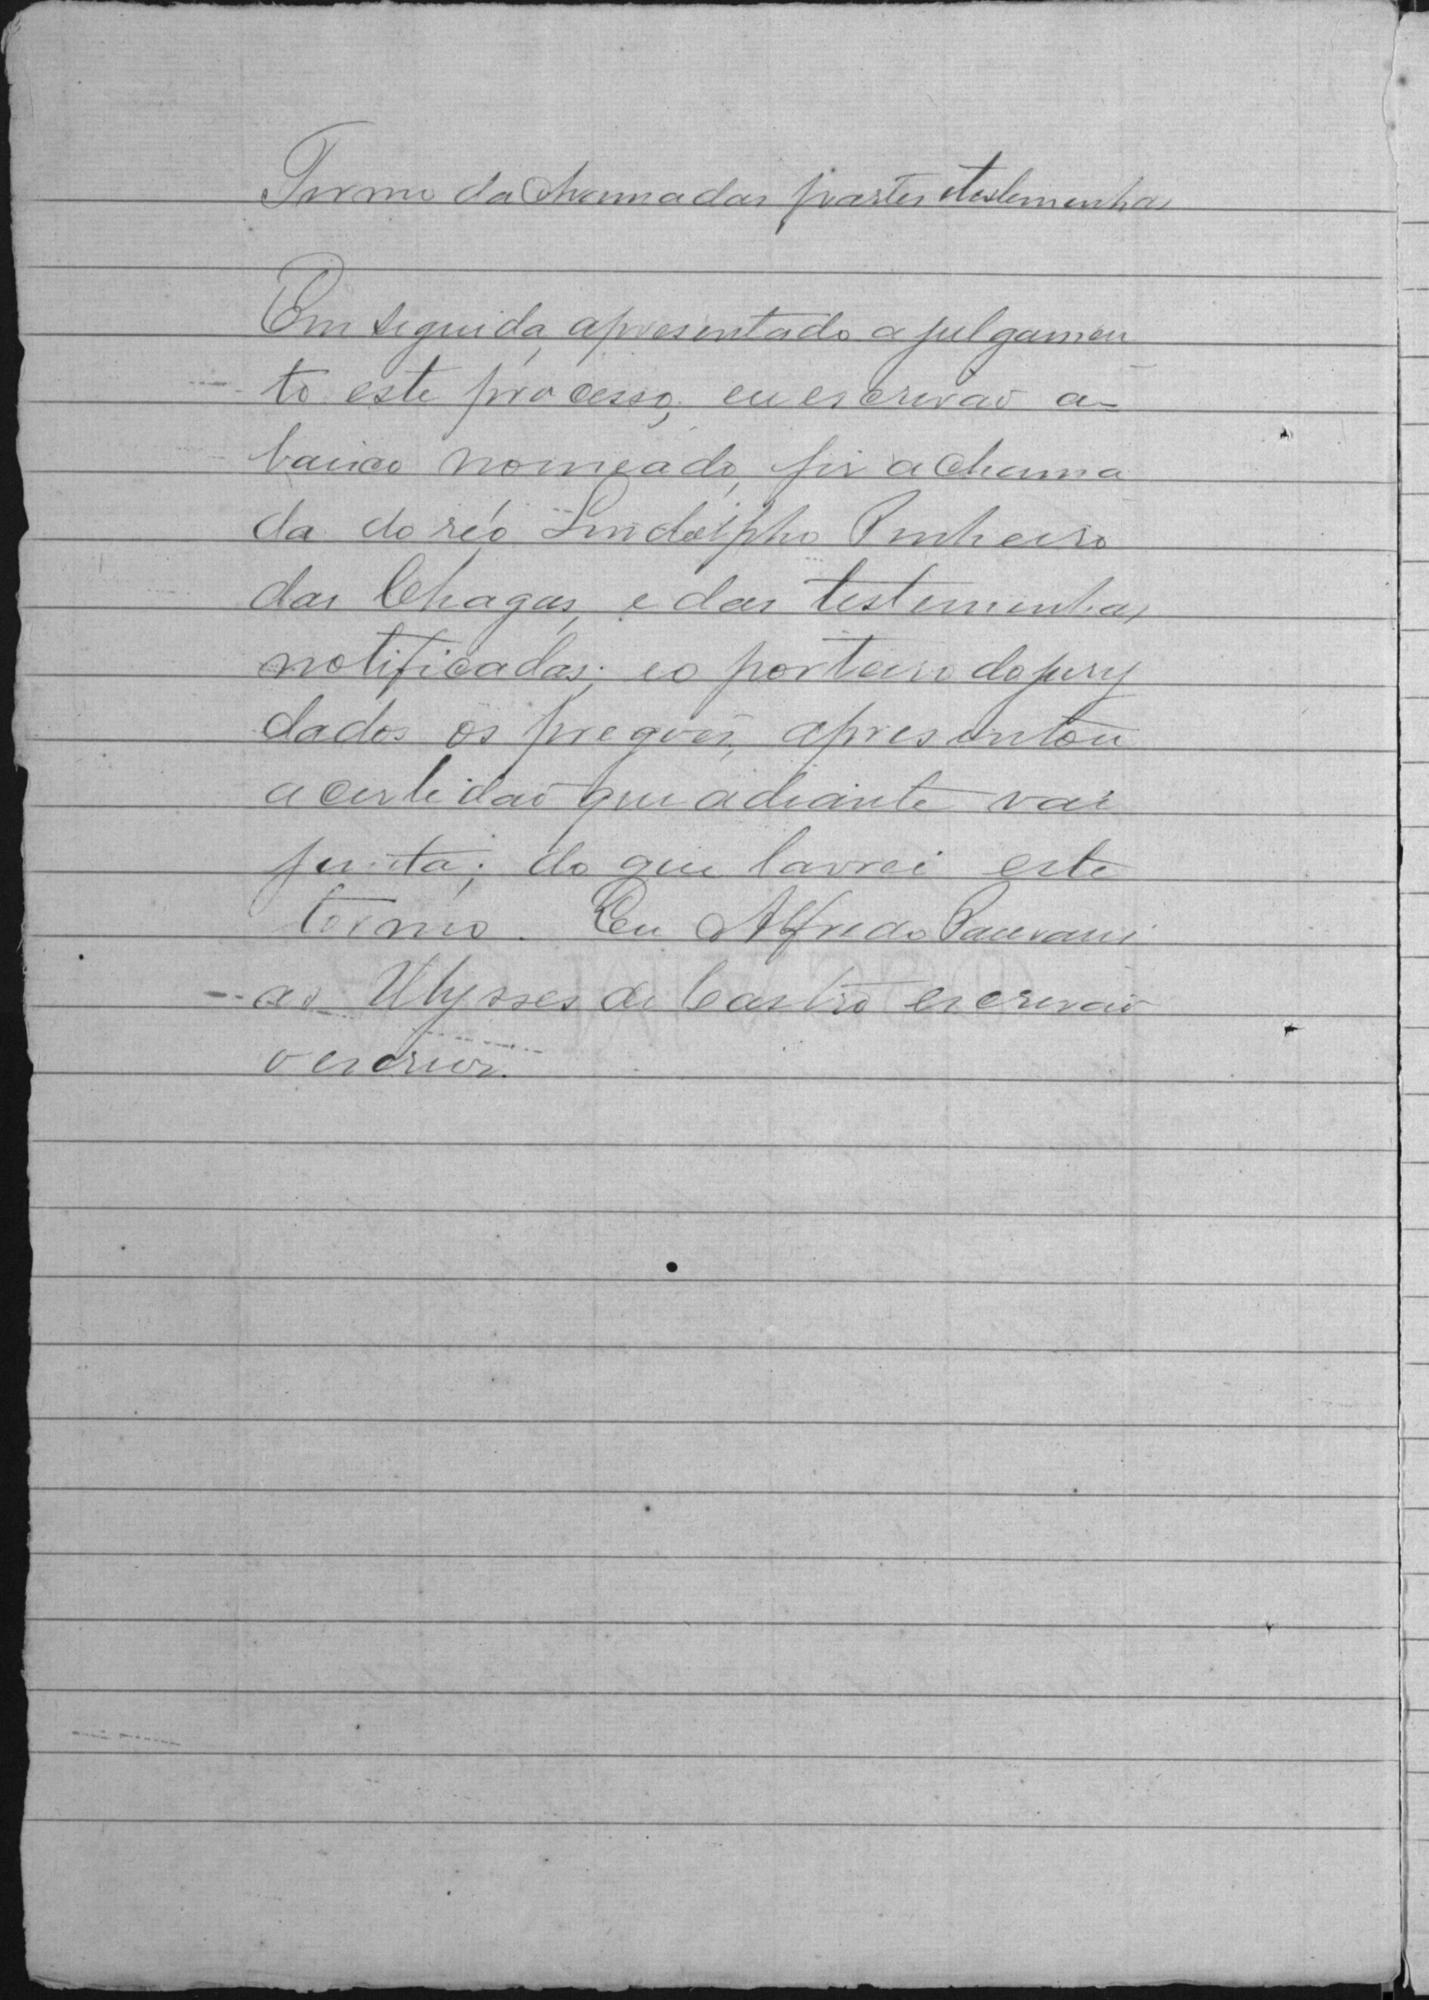 Termo da chamada das partes e testemunhas
Em seguida, apresentado a julgamen
to este processo, eu escrivão a-
baixo nomeado, fiz a chama
da do réo Lindolpho Pinheiro
das Chagas, e das testemunhas
notificadas; e o porteiro do jury
dados os pregões, apresentou
a certidão que adiante vae
junta; do que lavrei este
termo. Eu Alfredo
Ulysses de Castro escrivão
o escrevi.